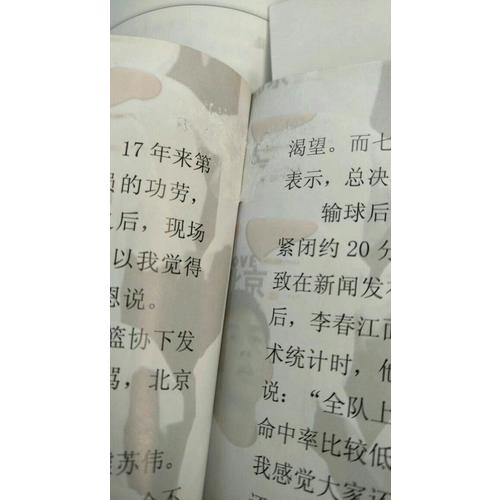 17年来第
的功劳,
后，现场
以我觉得
恩说。
篮协下发
骂，北京
苏伟。
渴望。而七
表示，总决
输球后
紧闭约20分
致在新闻发布
后，李春江面
术统计时，他
说：“全队上
命中率比较低
我感觉大家还
OVE
京